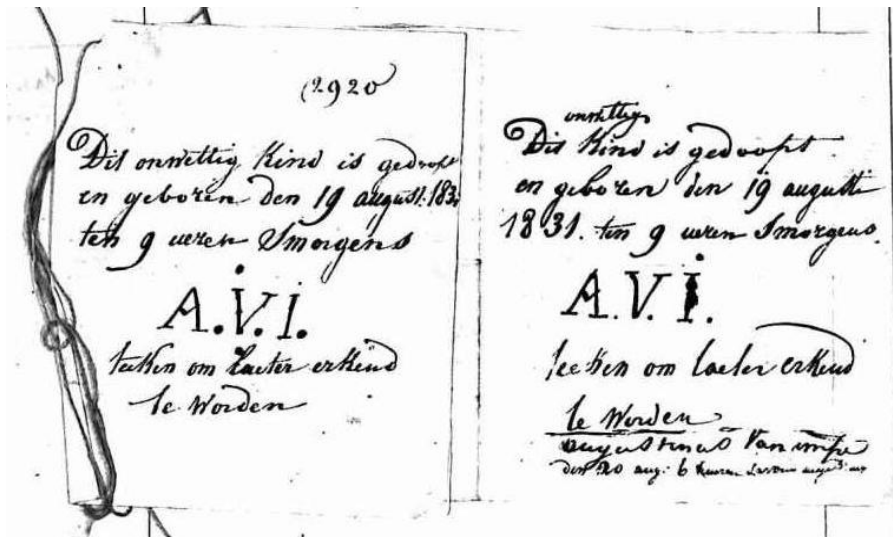 (2920
Dit onwettig Kind is gedoopt
en geboren den 19 august: 183
ten 9 ueren Smorgens
A.V.I.
teeken om Laeter erkend
te Worden
onwettig
Dit Kind is gedoopt
en geboren den 19 augusti
1831. ten 9 ueren Smorgens
A.V.I.
teeken om laeter erkend
te Worden
augustinus Van impe
den 20 aug: 6